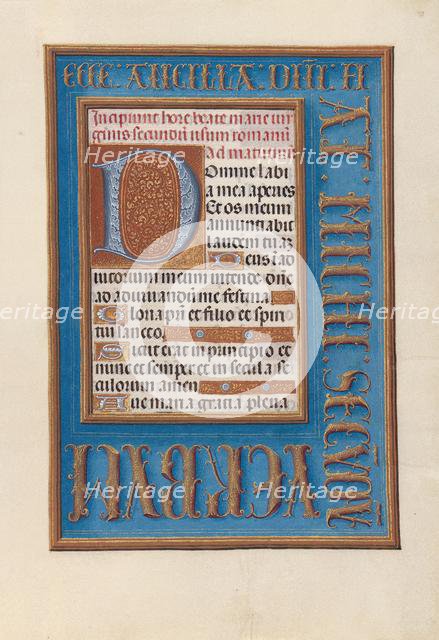 ECCE · ANCILLA · DÑI · FI
AT · MICHI · SECVNDV̄
VERBVM
Incipiunt hore beate marie vir
ginis secundũ usum romanũ
Ad matutinũ
Domine labi
a mea aperies
Et os meum
annuntiabit
laudem tuã
Deus ĩ ad
iutorium meum intende dñe
ad adiuvandũ me festina
Gloria pr̃i et filio et spiri
tui sancto
Sicut erat in principio et
nunc et semper et in secula se
culorum amen
Ave maria gratia plena
Heritage Heritage Heritage
Heritage Heritage Heritage
Heritage Heritage